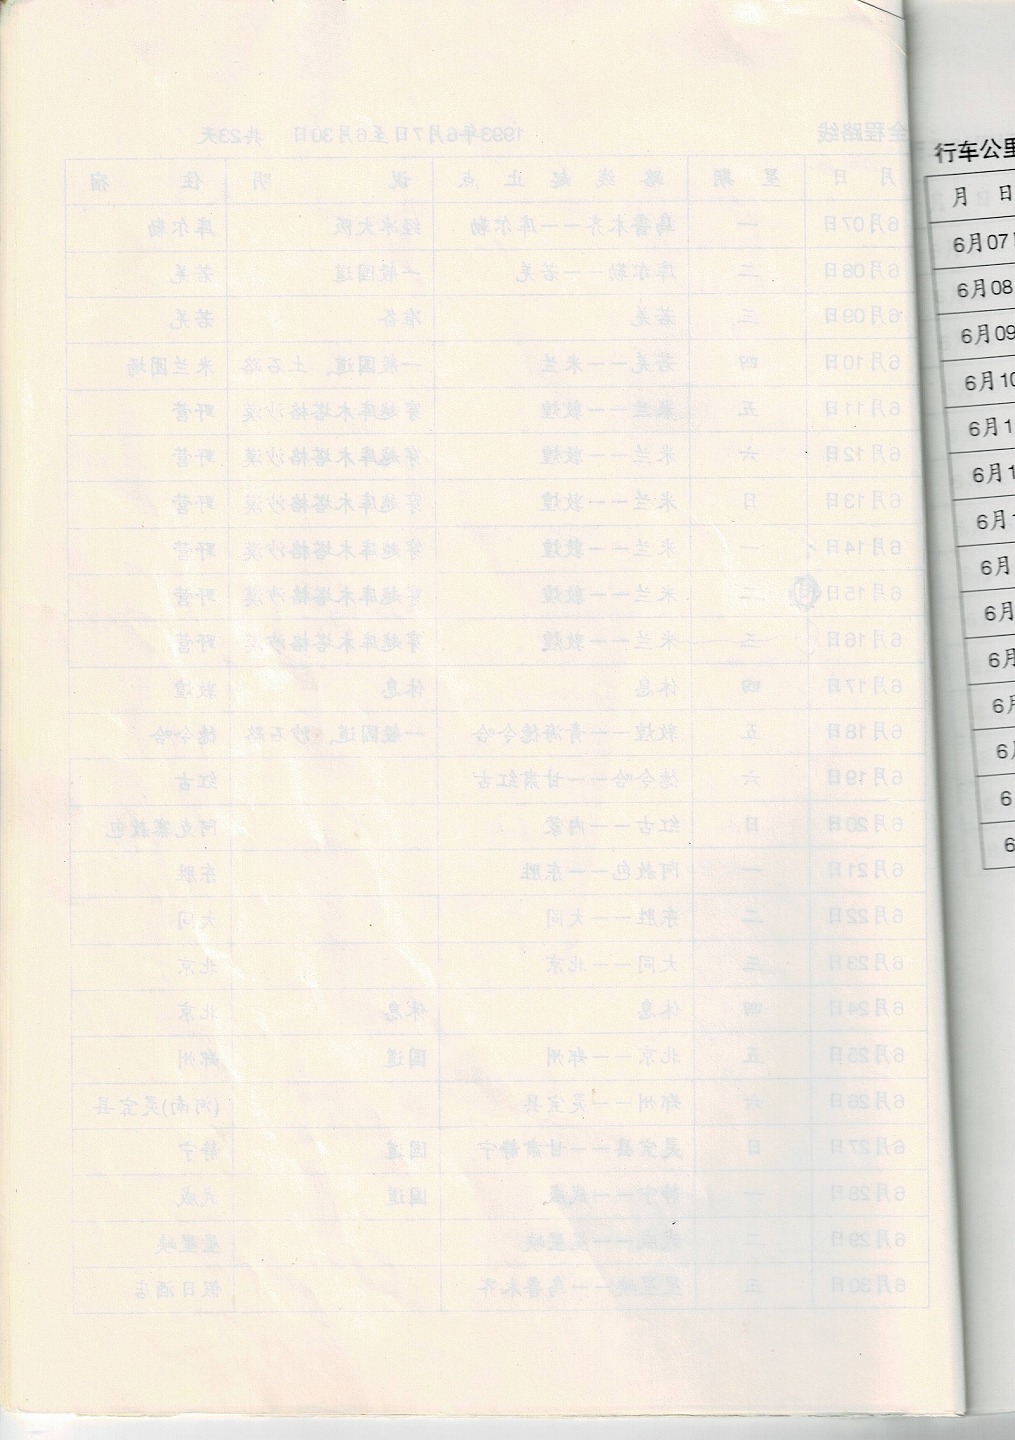 全程路线 1993年6月7日至6月30日 共23天
月 日 星 期 路 线 起 止 点 说 明 住 宿
6月07日 一 乌鲁木齐——库尔勒 经冰大阪 库尔勒
6月08日 二 库尔勒——若羌 一般国道 若羌
6月09日 三 若羌 准备 若羌
6月10日 四 若羌——米兰 一般国道、土石路 米兰团场
6月11日 五 米兰——敦煌 穿越库木塔格沙漠 野营
6月12日 六 米兰——敦煌 穿越库木塔格沙漠 野营
6月13日 日 米兰——敦煌 穿越库木塔格沙漠 野营
6月14日 一 米兰——敦煌 穿越库木塔格沙漠 野营
6月15日 二 米兰——敦煌 穿越库木塔格沙漠 野营
6月16日 三 米兰——敦煌 穿越库木塔格沙漠 野营
6月17日 四 休息 休息 敦煌
6月18日 五 敦煌——青海德令哈 一般国道、沙石路 德令哈
6月19日 六 德令哈——甘肃红古 红古
6月20日 日 红古——内蒙 阿克塞敖包
6月21日 一 阿敖包——东胜 东胜
6月22日 二 东胜——大同 大同
6月23日 三 大同——北京 北京
6月24日 四 休息 休息 北京
6月25日 五 北京——郑州 国道 郑州
6月26日 六 郑州——灵宝县 (河南)灵宝县
6月27日 日 灵宝县——甘肃静宁 国道 静宁
6月28日 一 静宁——武威 国道 武威
6月29日 二 武威——星星峡 星星峡
6月30日 三 星星峡——乌鲁木齐 假日酒店
行车公里
月 日
6月07
6月08
6月09
6月10
6月1
6月1
6月1
6月
6月
6月
6月
6月
6
6